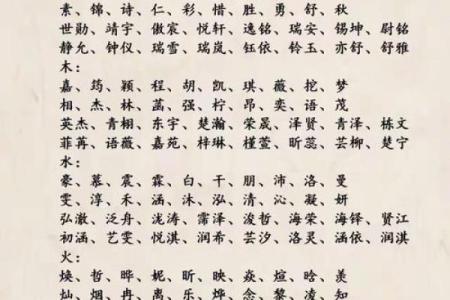 素、锦、诗、仁、彩、惜、胜、勇、舒、秋
世勋、靖宇、傲宸、悦轩、逸铭、瑞安、锡坤、尉铭
静允、钟仪、瑞雪、瑞岚、钰依、铃玉、亦舒、舒雅
木：
嘉、筠、颖、程、胡、凯、琪、薇、挖、梦
相、杰、林、菡、强、柠、昂、奕、语、茂
英杰、青栩、东宇、楚瀚、荣晟、泽贤、青泽、栋文
菲苒、语薇、嘉苑、梓琳、槿萱、昕蕊、芸柳、楚宁
水：
豪、慕、震、霖、白、干、朋、沛、洛、曼
雯、淳、禾、涵、沐、泓、清、沁、凝、妍
弘澈、泛舟、泷涛、霈泽、浚哲、海荣、海铎、贤江
初涵、艺雯、悦淇、润希、芸汐、洛灵、涵依、润淇
火：
焕、哲、晔、妮、昕、映、焱、煊、晗、羡
灿、烟、冉、离、乐、、念、黎、凌、知